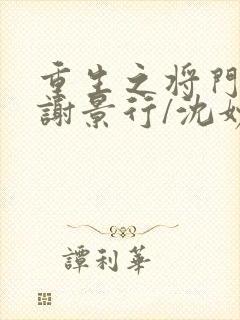 重生之将門
謝景行/沈妙
譚利華